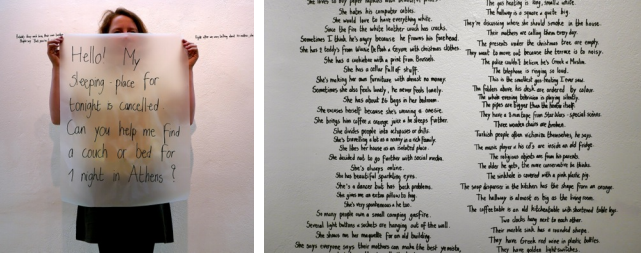 Hello! My
sleeping-place for
tonight is cancelled
Can you help me find
a couch or bed for
1 night in Athens?
She hates his computer cables.
She would love to have everything white.
Since the Fin the white leather couch has cracks.
Sometimes I think he's angry because he frowns his forehead.
She has a cushion with a print from Brussels.
She has a cellar full of stuff.
She's making her own furniture with almost no money.
Sometimes she feels lonely, he never feels lonely.
She has about 86 bags in her bedroom.
She excuses herself because she's wearing a onesie.
She brings him coffee & orange juice & he sleeps further.
She divides people into religious or chills.
She likes her house as an isolated place.
She decided not to go further with social media.
She's always online.
She has beautiful sparkling eyes.
She's a dancer but has back problems.
She gives me an extra pillow to hug.
She's very spontaneous & he too.
So many people own a small camping gasfire.
Several light buttons & sockets are hanging out of the wall.
She shows me her maquette for an old building.
She says everyone says their mothers can make the best yemista,
The gas heating is tiny, small & white.
The hallway is a square & quite big.
They're discussing where she should smoke in the house.
Their mothers are calling them every day.
The presents under the christmas tree are empty.
They want to move out because the terrace is too noisy.
The police couldn't believe he's Greek & Muslim.
The telephone is ringing so loud.
This is the smallest gas-heating I ever saw.
The folders above his desk are ordered by colour.
The whole evening television is playing silently.
They have a 3 m tape from Star Wars - special scenes.
Three wooden chairs are broken.
Turkish people often victimize themselves, he says.
The music player & his cd's are inside an old fridge.
The religious objects are from his parents.
The older he gets, the more conservative he thinks.
The sinkhole is covered with a pink plastic pig.
The soap dispenser in the kitchen has the shape from an orange.
The hallway is almost as big as the living room.
The coffee table is an old kitchentable with shortened table legs.
Two clocks hang next to each other.
Their marble sink has a rounded shape.
They have Greek red wine in plastic bottles.
They have golden lightswitches.